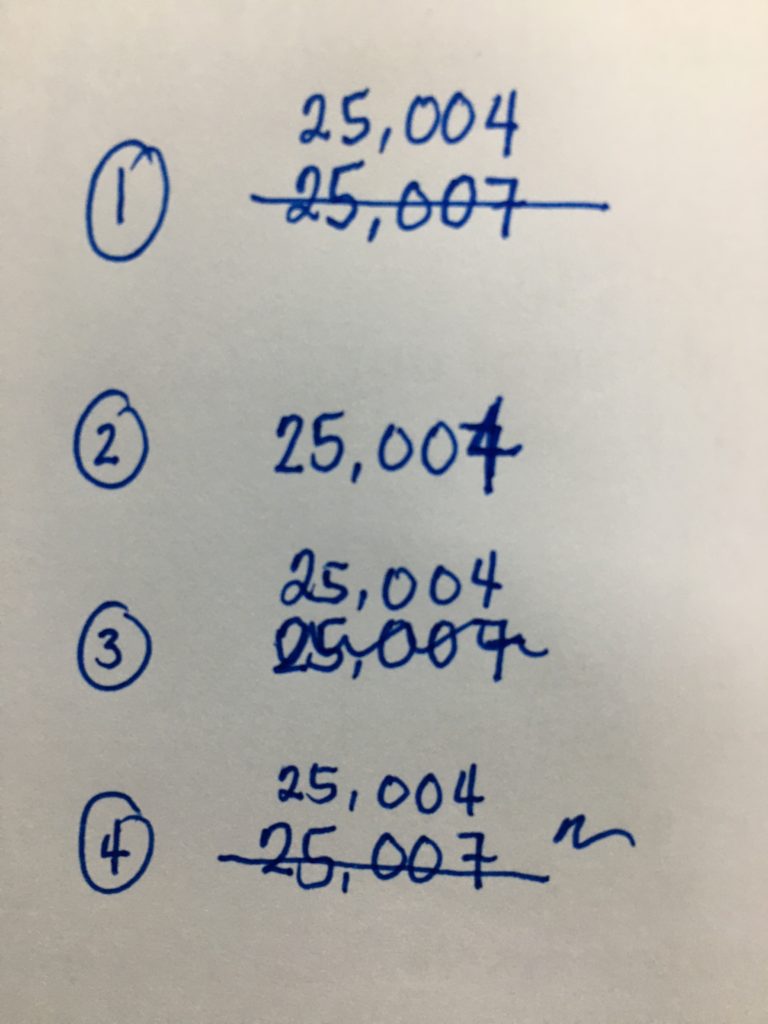 25,004
① 25,007
② 25,004
25,004
③ 25,007
25,004
④ 25,007